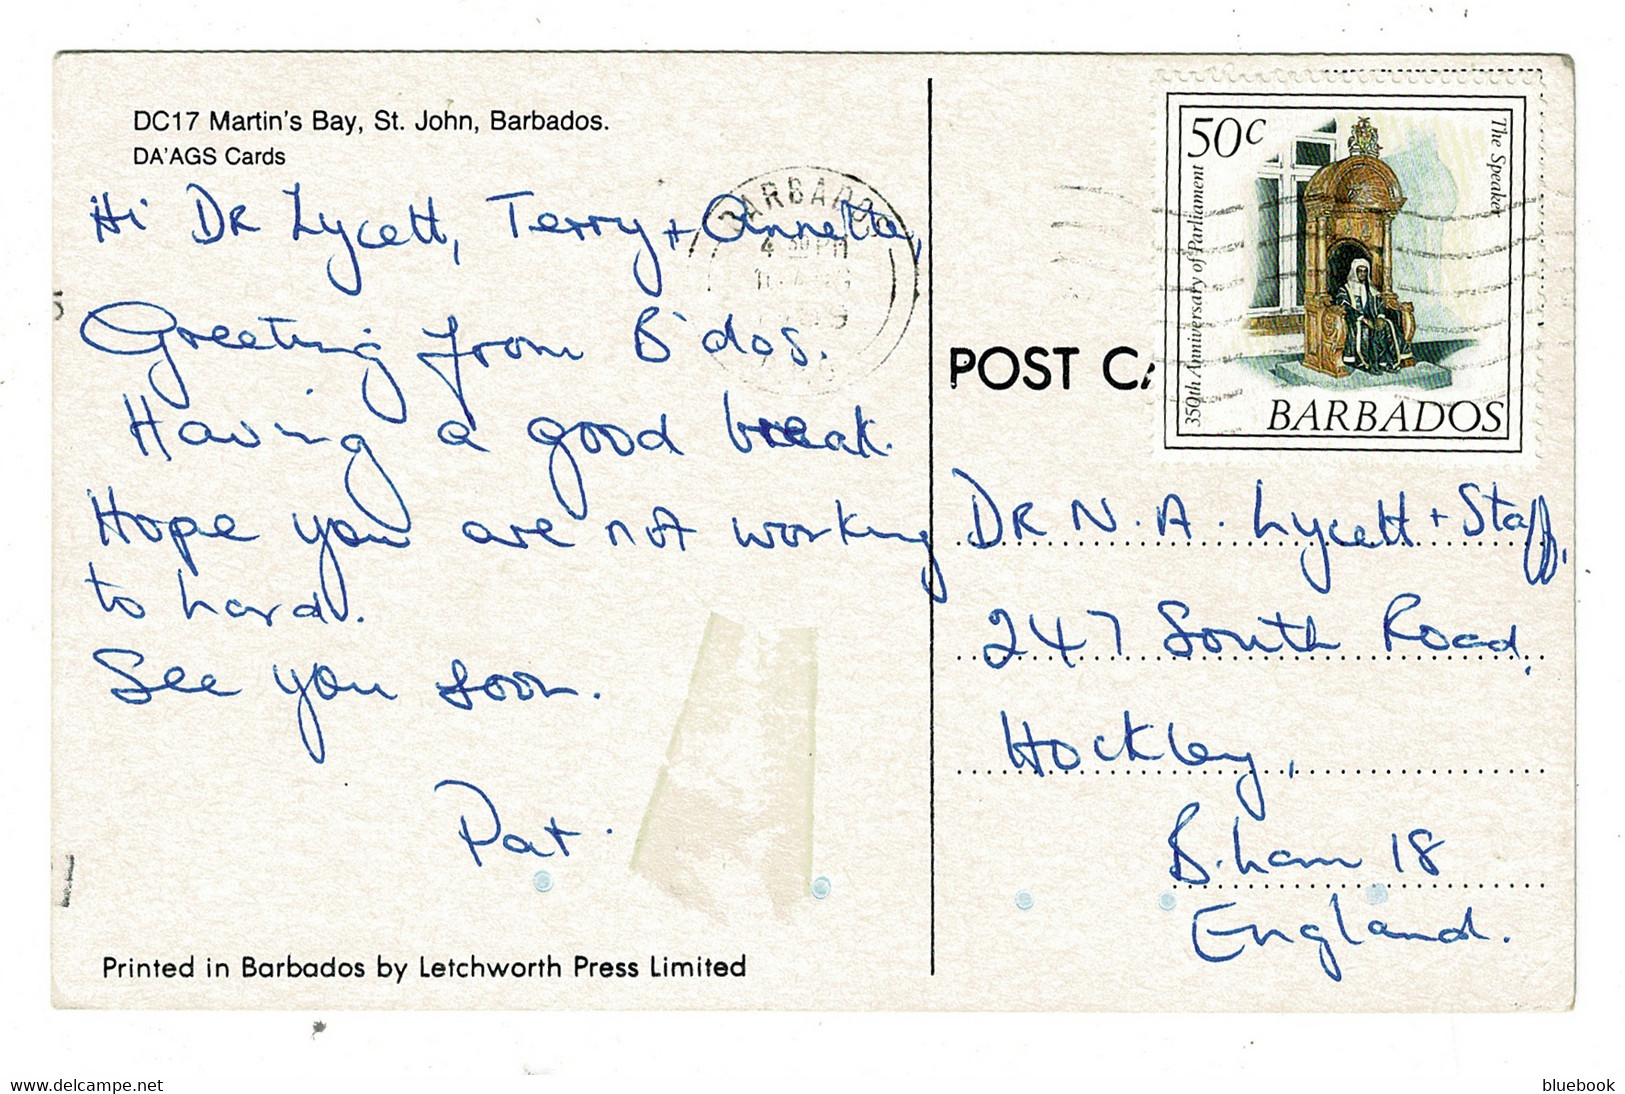 DC17 Martin's Bay, St. John, Barbados.
DA'AGS Cards
Hi DR Lycett, Terry + Annetta,
Greeting from B'dos.
Having a good break.
Hope you are not working
to hard.
See you soon.
Pat.
Printed in Barbados by Letchworth Press Limited
BARBADOS
4 30 PM
50c
The Speaker
350th Anniversary of Parliament
BARBADOS
POST CA
DR N. A. Lycett + Staff,
247 South Road,
Hockley,
B.ham 18
England.
www.delcampe.net
bluebook